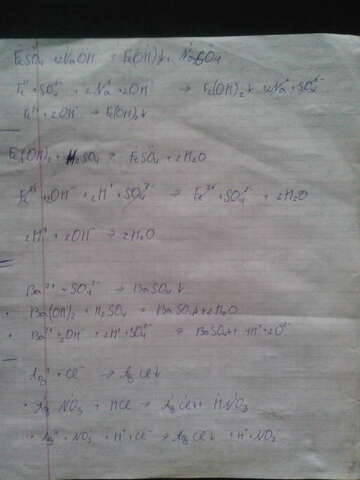 FeSO4 + 2NaOH = Fe(OH)2↓ + Na2SO4
Fe²⁺ + SO4²⁻ + 2Na⁺ + 2OH⁻ → Fe(OH)2↓ + 2Na⁺ + SO4²⁻
Fe²⁺ + 2OH⁻ → Fe(OH)2↓
Fe(OH)2 + H2SO4 = FeSO4 + 2H2O
Fe²⁺ + 2OH⁻ + 2H⁺ + SO4²⁻ → Fe²⁺ + SO4²⁻ + 2H2O
2H⁺ + 2OH⁻ → 2H2O
Ba²⁺ + SO4²⁻ → BaSO4↓
• Ba(OH)2 + H2SO4 = BaSO4↓ + 2H2O
• Ba²⁺ + 2OH⁻ + 2H⁺ + SO4²⁻ = BaSO4↓ + 4H⁺ + 2O²⁻
Ag⁺ + Cl⁻ → AgCl↓
• AgNO3 + HCl → AgCl↓ + HNO3
• Ag⁺ + NO3⁻ + H⁺ + Cl⁻ → AgCl↓ + H⁺ + NO3⁻